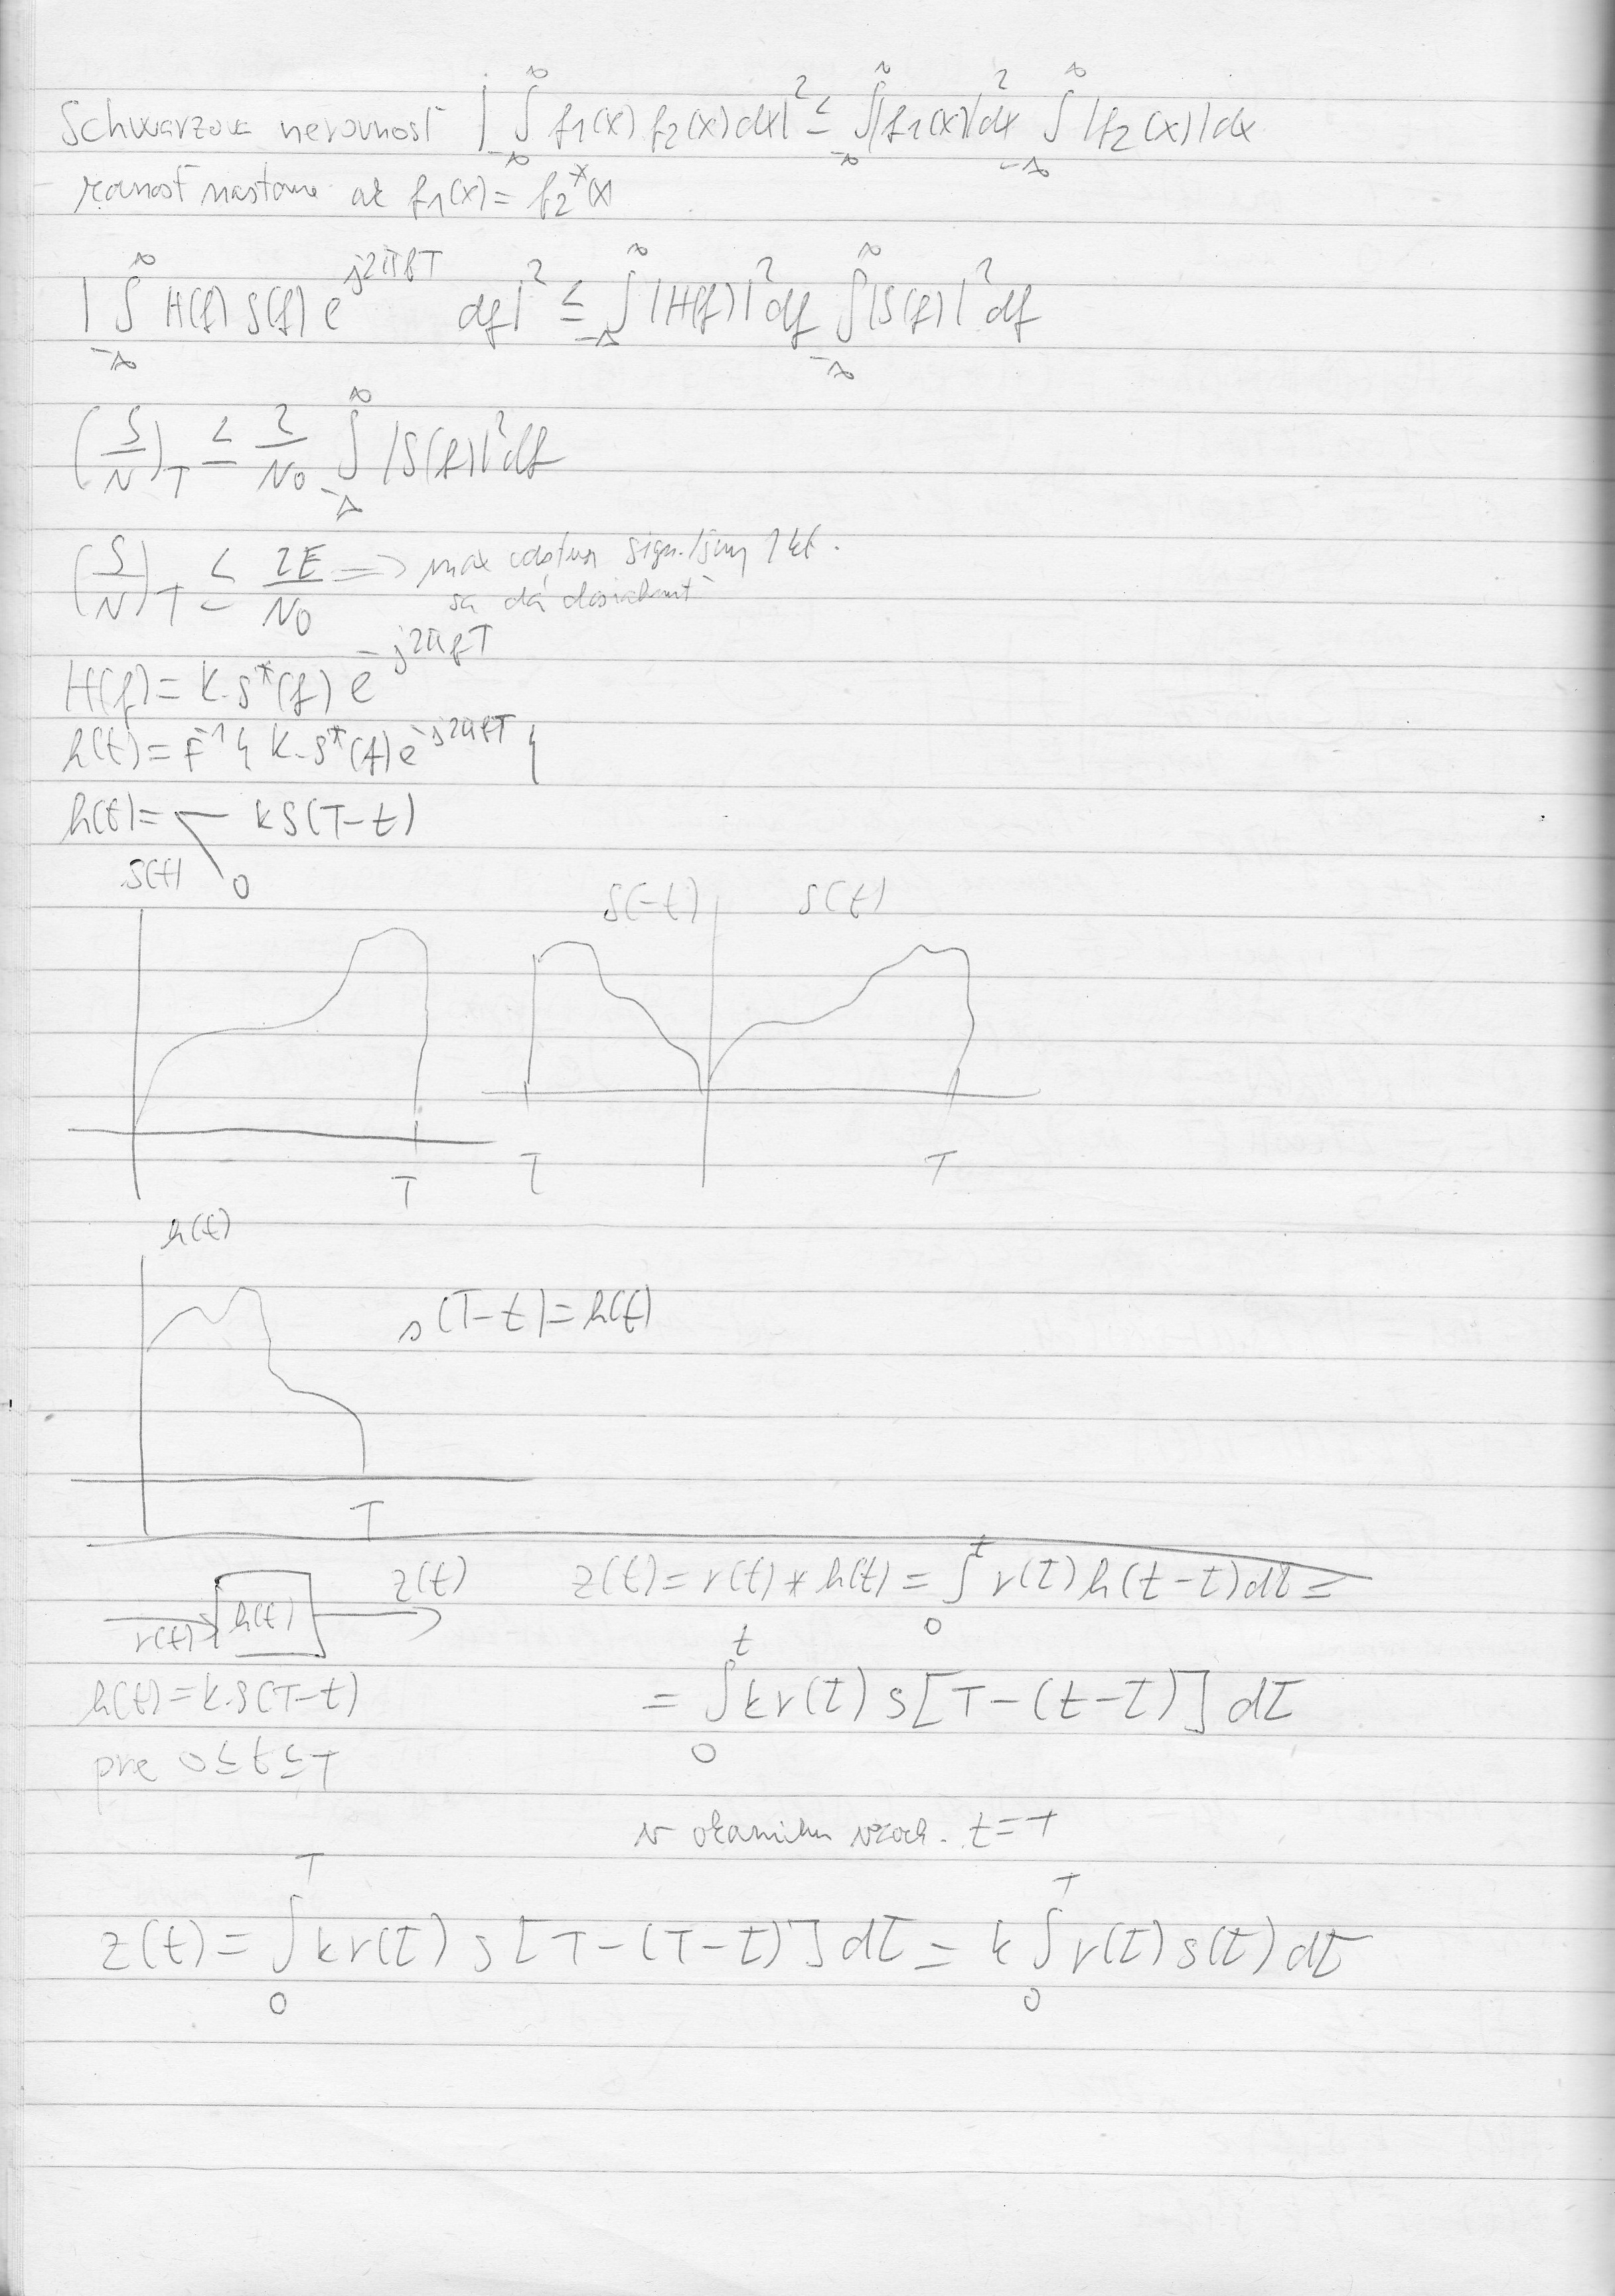 Schwarzova nerovnosť |∫_{-∞}^{∞} f1(x) f2(x) dx|² ≤ ∫_{-∞}^{∞} |f1(x)|² dx ∫_{-∞}^{∞} |f2(x)| dx
rovnosť nastane ak f1(x) = f2*(x)
|∫_{-∞}^{∞} H(f) S(f) e^{j2πfT} df|² ≤ ∫_{-∞}^{∞} |H(f)|² df ∫_{-∞}^{∞} |S(f)|² df
(S/N)_T ≤ 2/N0 ∫_{-∞}^{∞} |S(f)|² df
(S/N)_T ≤ 2E/N0 => max odstup sign./šum kt.
sa dá dosiahnuť
H(f) = k.S*(f) e^{-j2πfT}
h(t) = F^{-1}{ k.S*(f) e^{-j2πfT} }
h(t) = kS(T-t)
0
S(t)
S(-t) S(t)
T T T
h(t)
s(T-t) = h(t)
T
r(t) h(t) z(t) z(t) = r(t) * h(t) = ∫_0^t r(τ) h(t-τ) dτ =
h(t) = k.S(T-t) = ∫_0^t k r(τ) s[T-(t-τ)] dτ
pre 0 ≤ t ≤ T
v okamihu vzork. t=T
z(t) = ∫_0^T k r(τ) s[T-(T-τ)] dτ = k ∫_0^T r(τ) s(τ) dτ